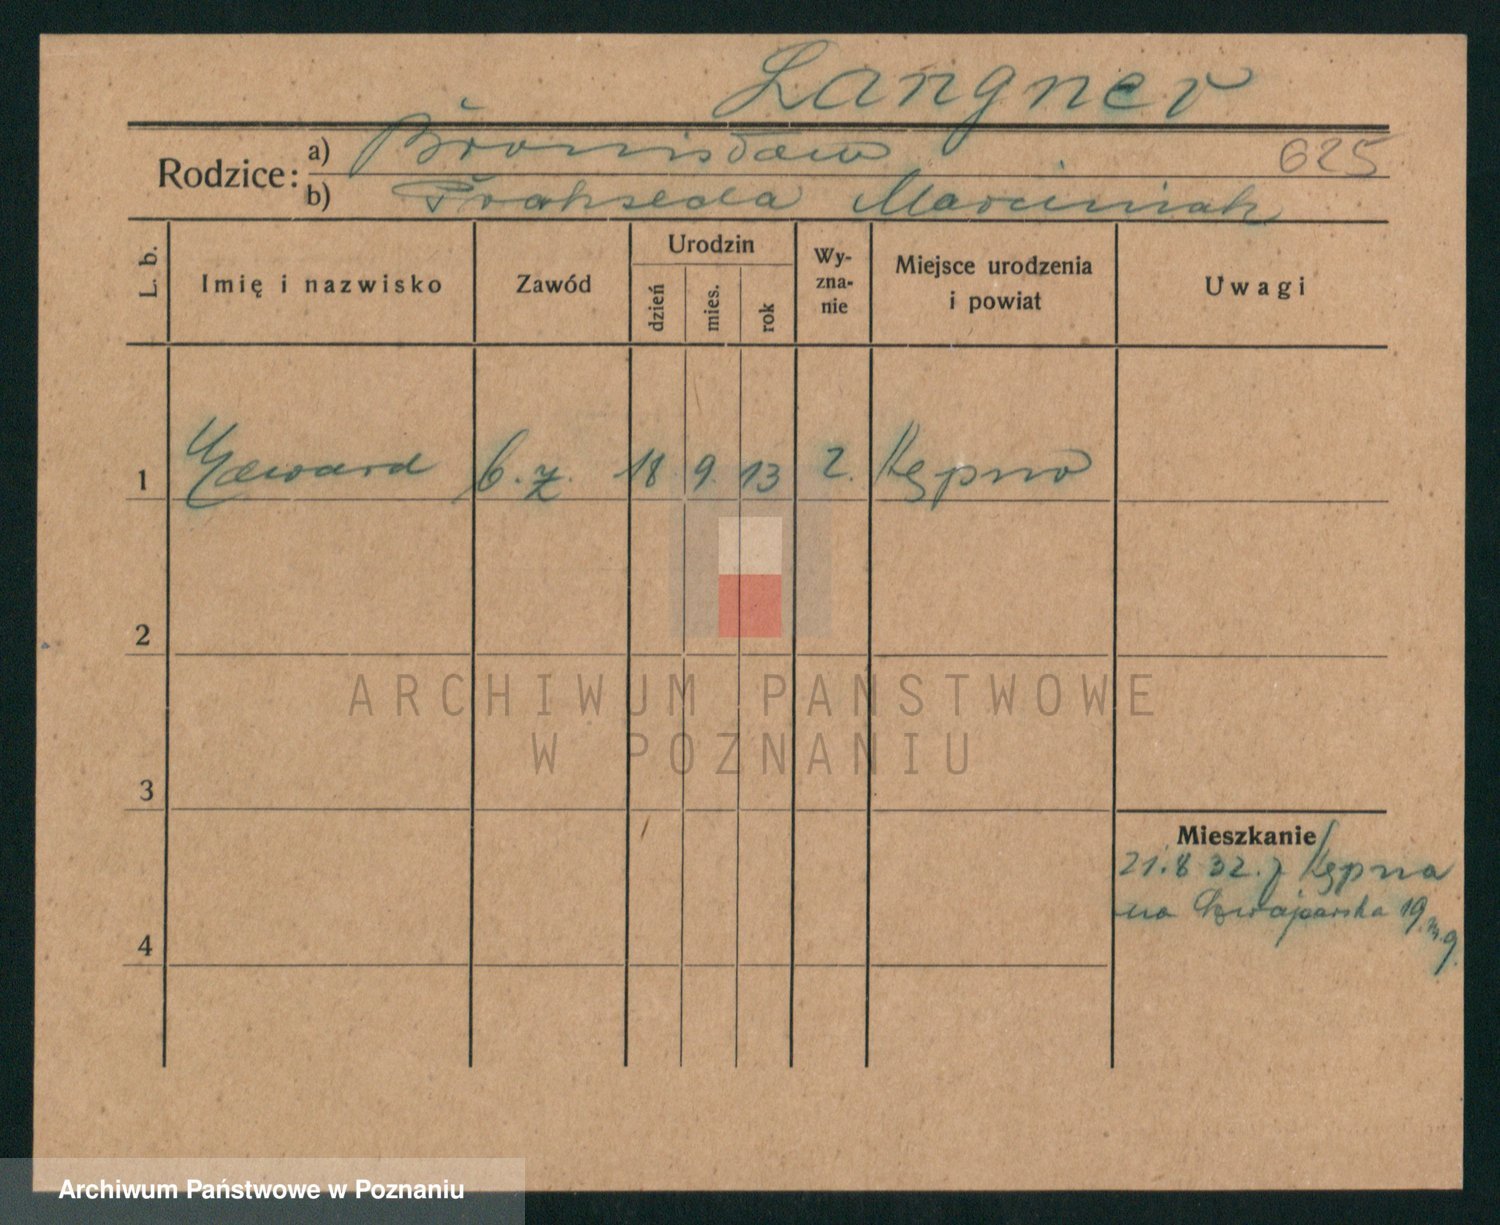 Langner
Rodzice: a) Bronisław 625
b) Prakseda Marciniak
L. b.
Imię i nazwisko
Zawód
Urodzin
dzień
mies.
rok
Wy-
zna-
nie
Miejsce urodzenia
i powiat
Uwagi
1 Edward b. z. 18 9. 13 2. Kępno
2
ARCHIWUM PAŃSTWOWE
W POZNANIU
3
Mieszkanie
21.8 32. z Kępna
na Szwajcarska 19 m. 9.
4
Archiwum Państwowe w Poznaniu